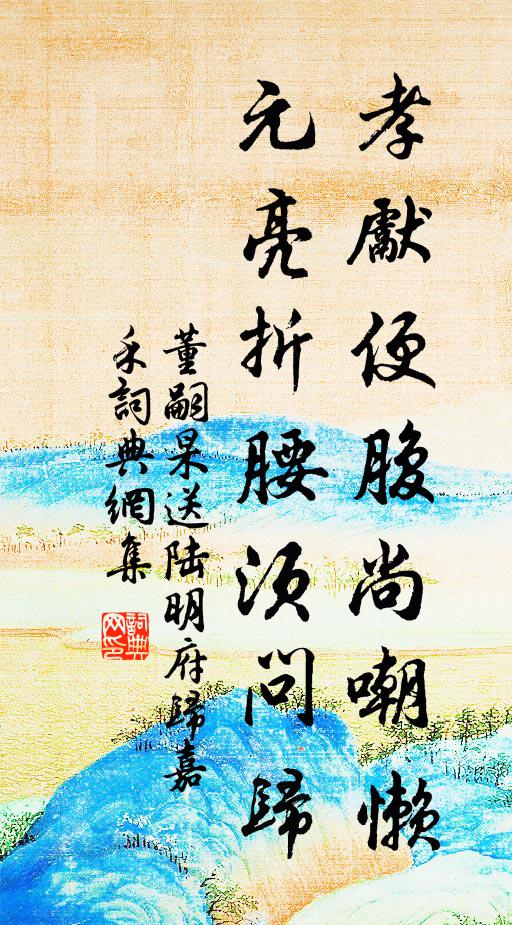 孝獻便腹尚嘲懶
元亮折腰須問歸
董嗣杲送陸明府歸嘉
禾詞典網集
詞典网印